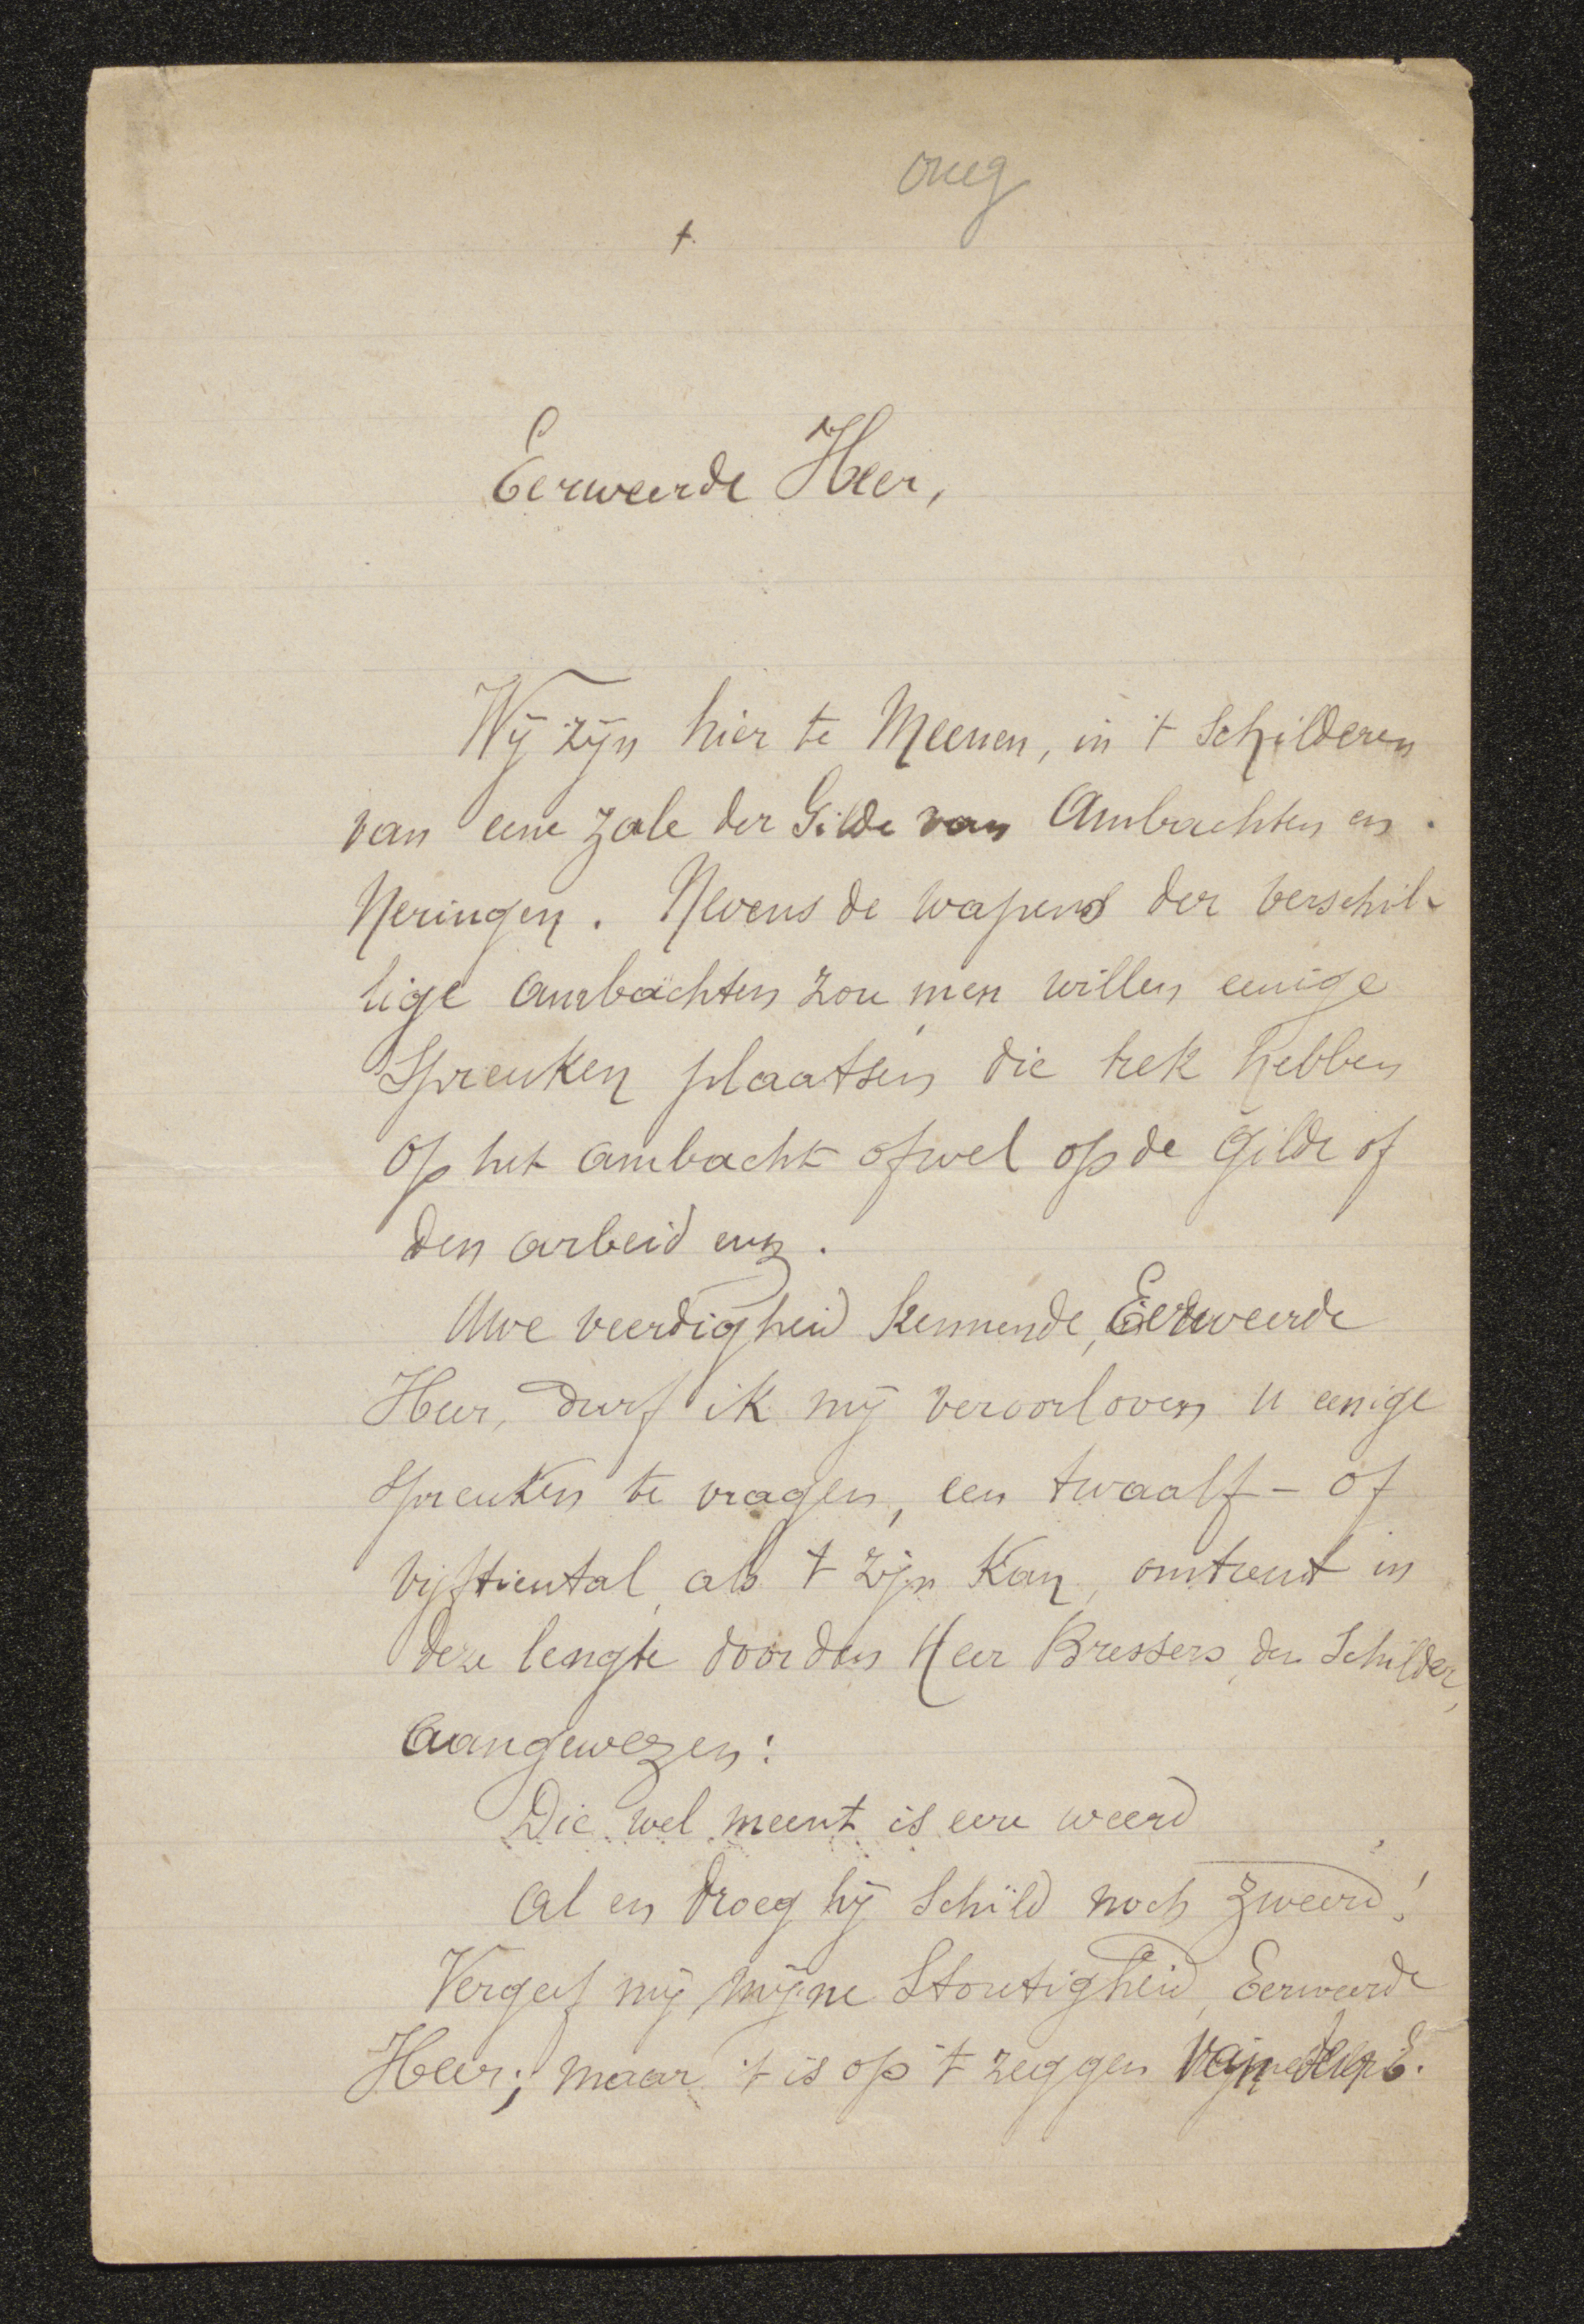 ong
+
Eerweerde Heer,
Wij zijn hier te Meenen, in 't schilderen
van eene zale der Gilde van Ambachten en
Neringen. Nevens de wapens der verschil-
lige ambachten zou men willen eenige
Spreuken plaatsen die trek hebben
op het ambacht ofwel op de gilde of
den arbeid enz.
Uwe veerdigheid kennende, Eerweerde
Heer, durf ik mij veroorloven u eenige
spreuken te vragen, een twaalf- of
vijftiental, als 't zijn kan, omtrent in
deze lengte door den Heer Bressers, den Schilder,
aangewezen:
Die wel meent is eere weerd
al en droeg hij schild noch zweerd!
Vergeef mij mijne Stoutigheid, Eerweerde
Heer; maar 't is op 't zeggen van den E.